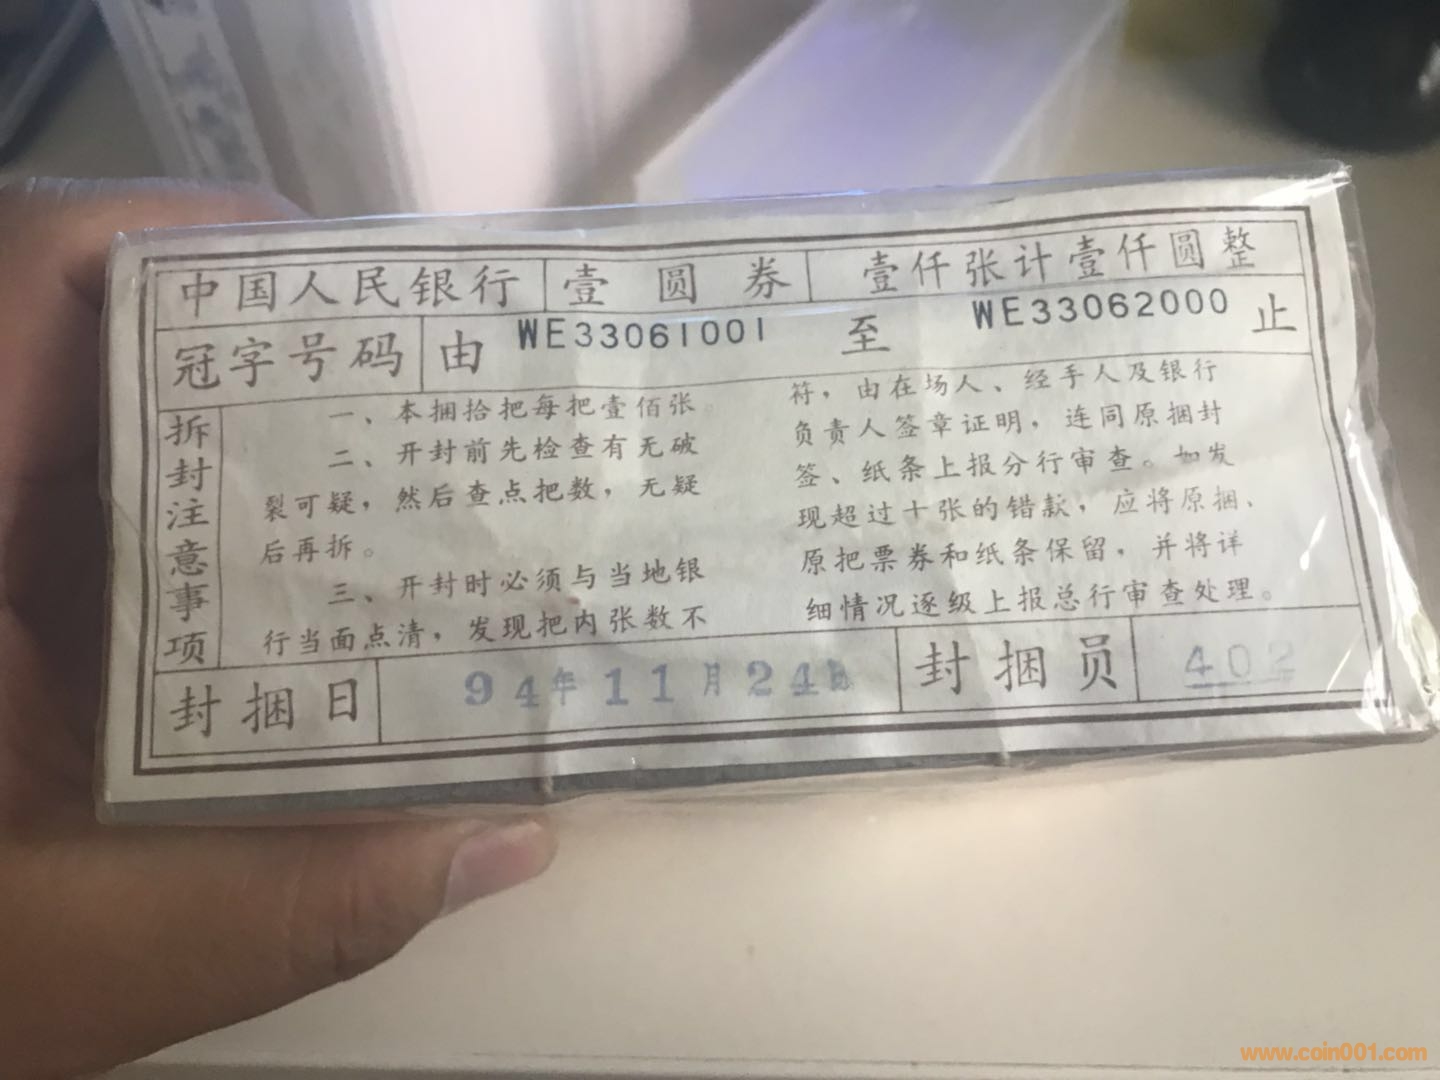 中国人民银行 壹圆券 壹仟张计壹仟圆整
冠字号码 由 WE33061001 至 WE33062000 止
拆封注意事项
一、本捆拾把每把壹佰张。
二、开封前先检查有无破
裂可疑，然后查点把数，无疑
后再拆。
三、开封时必须与当地银
行当面点清，发现把内张数不
符，由在场人、经手人及银行
负责人签章证明，连同原捆封
签、纸条上报分行审查。如发
现超过十张的错款，应将原捆、
原把票券和纸条保留，并将详
细情况逐级上报总行审查处理。
封捆日 94年11月24日 封捆员 402
www.coin001.com